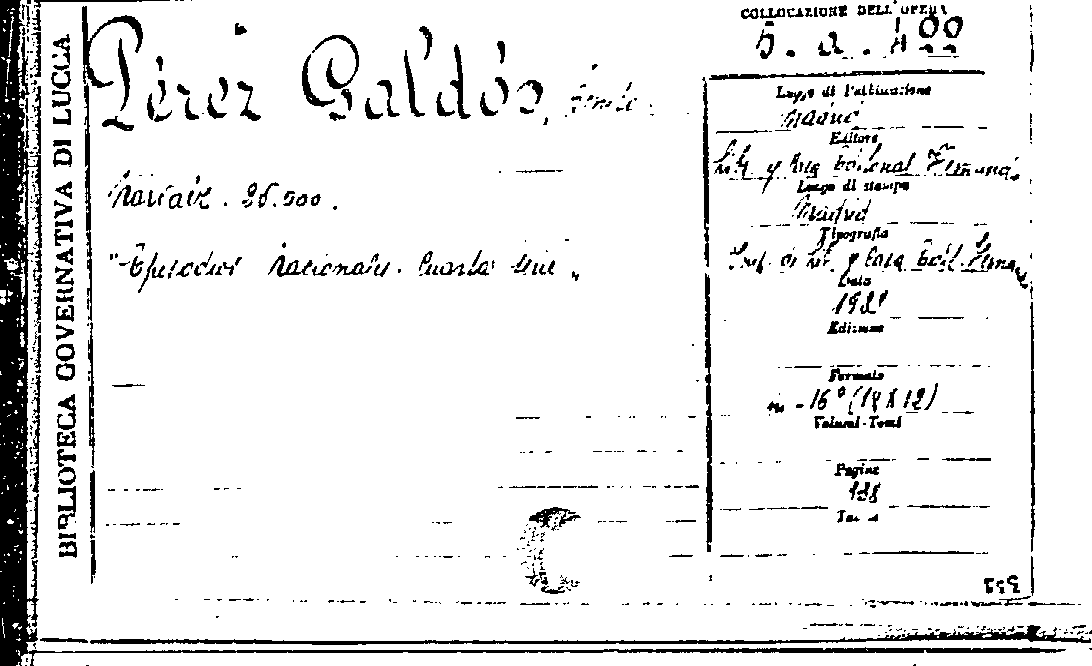 BIBLIOTECA GOVERNATIVA DI LUCCA
Pérez Galdós, Benito.
Narváez. 26.000.
"Episodios Nacionales. Cuarta serie"
COLLOCAZIONE DELL'OPERA
5. a. 400
Luogo di pubblicazione
Madrid
Editore
Lib. y Casa Editorial Hernando
Luogo di stampa
Madrid
Tipografia
Imp. de Lib. y Casa Edit. Hernando
Data
Edizione
Formato
in-16° (18x12)
Volumi-Tomi
Pagine